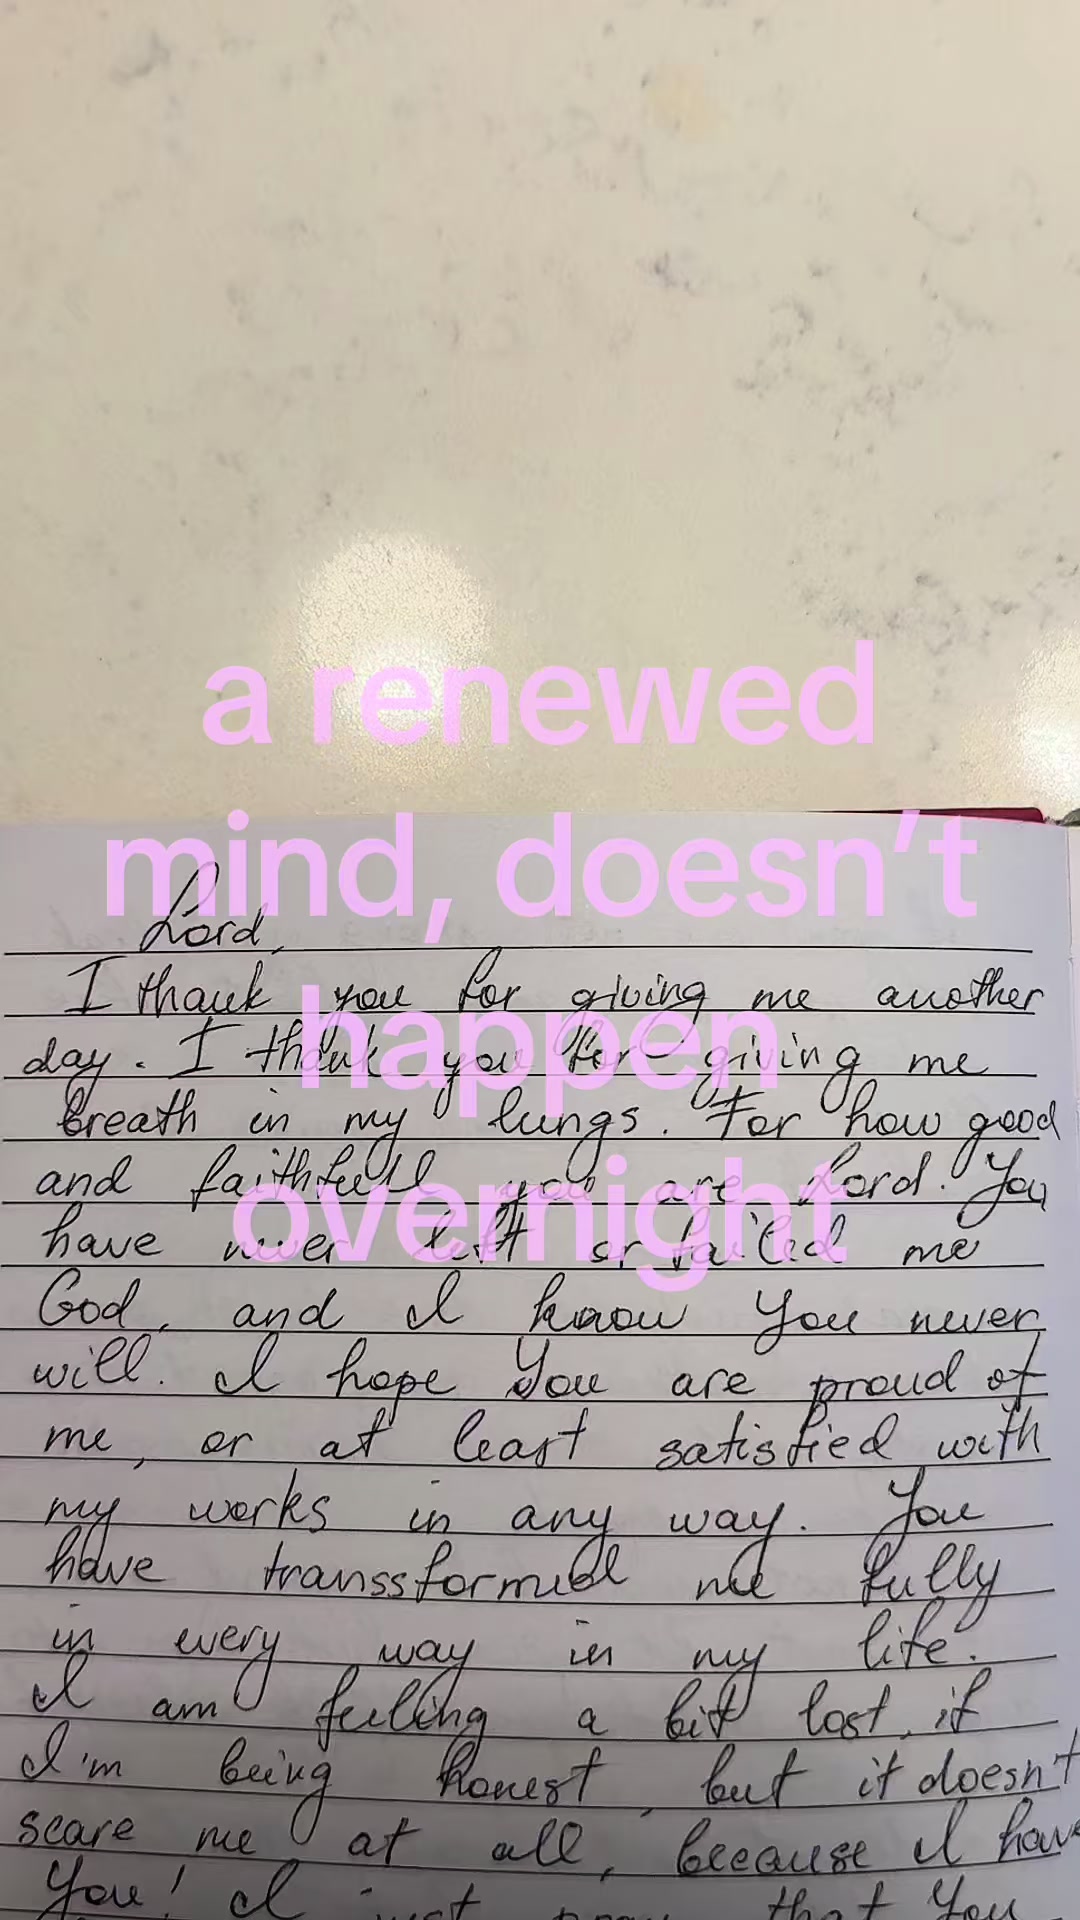 a renewed
mind, doesn't
happen
overnight
Lord,
I thank you for giving me another
day. I thank you for giving me
breath in my lungs. For how good
and faithfull you are Lord. You
have never left or failed me
God, and I know You never
will. I hope You are proud of
me, or at least satisfied with
my works in any way. You
have transsformed me fully
in every way in my life.
I am feeling a bit lost, if
I'm being honest, but it doesn't
scare me at all, because I have
You! I just pray that You